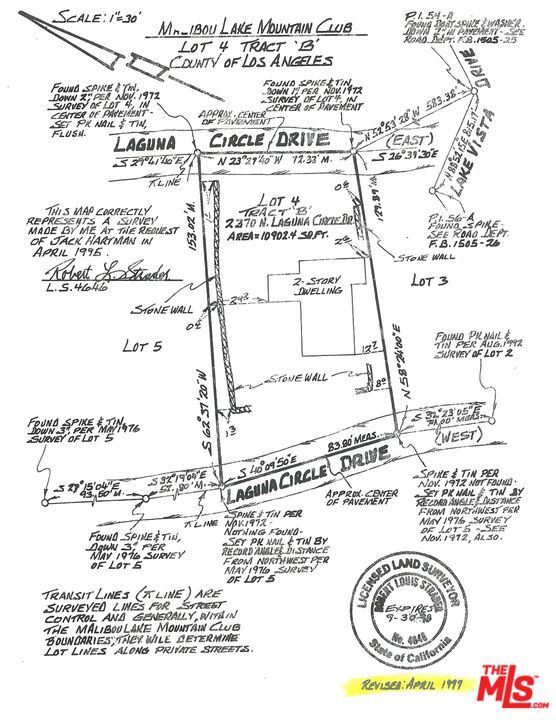 SCALE: 1"=30'
MALIBOU LAKE MOUNTAIN CLUB
LOT 4 TRACT 'B'
COUNTY OF LOS ANGELES
P.I. 54-A
FOUND BOAT SPIKE & WASHER
DOWN 2" IN PAVEMENT - SEE
ROAD DEPT. F.B. 1505-25
FOUND SPIKE & TIN,
DOWN 2", PER NOV. 1972
SURVEY OF LOT 4, IN
CENTER OF PAVEMENT-
SET PK NAIL & TIN,
FLUSH.
FOUND SPIKE & TIN,
DOWN 1", PER NOV. 1972
SURVEY OF LOT 4, IN
CENTER OF PAVEMENT
APPROX. CENTER
OF PAVEMENT
LAGUNA CIRCLE DRIVE
(EAST)
N 52°53'28"W 583.38'
LAKE VISTA DRIVE
S 29°41'40"E
N 23°27'40"W 72.33' M.
S 26°39'30"E
π LINE
P.I. 56-A
FOUND SPIKE-
SEE ROAD DEPT.
F.B. 1505-26
LOT 4
TRACT 'B'
2370 N. LAGUNA CIRCLE DR.
AREA=10902.4 SQ.FT.
153.02' M.
THIS MAP CORRECTLY
REPRESENTS A SURVEY
MADE BY ME AT THE REQUEST
OF JACK HARTMAN IN
APRIL 1995.
Robert L. Strader
L.S. 4646
STONE WALL
STONE WALL
LOT 3
2-STORY
DWELLING
LOT 5
STONE WALL
S 62°37'20"W
N 58°24'00"E
FOUND PK NAIL &
TIN PER AUG. 1992
SURVEY OF LOT 2
FOUND SPIKE & TIN,
DOWN 3", PER MAY 1976
SURVEY OF LOT 5
(WEST)
83.80' MEAS.
S 40°09'50"E
LAGUNA CIRCLE DRIVE
APPROX. CENTER
OF PAVEMENT
S 32°19'04"E
S 27°15'04"E
π LINE
FOUND SPIKE & TIN,
DOWN 3", PER
MAY 1976 SURVEY
OF LOT 5
SPIKE & TIN PER
NOV. 1972-
NOTHING FOUND-
SET PK NAIL & TIN BY
RECORD ANGLE & DISTANCE
FROM NORTHWEST PER
MAY 1976 SURVEY
OF LOT 5
SPIKE & TIN PER
NOV. 1972 NOT FOUND-
SET PK NAIL & TIN BY
RECORD ANGLE & DISTANCE
FROM NORTHWEST PER
MAY 1976 SURVEY
OF LOT 5 - SEE
NOV. 1972, ALSO.
TRANSIT LINES (π LINE) ARE
SURVEYED LINES FOR STREET
CONTROL AND GENERALLY, WITHIN
THE MALIBOU LAKE MOUNTAIN CLUB
BOUNDARIES, THEY WILL DETERMINE
LOT LINES ALONG PRIVATE STREETS.
LICENSED LAND SURVEYOR
ROBERT LOUIS STRADER
EXPIRES
9-30-98
No. 4646
State of California
REVISED: APRIL 1997
THE MLS.com